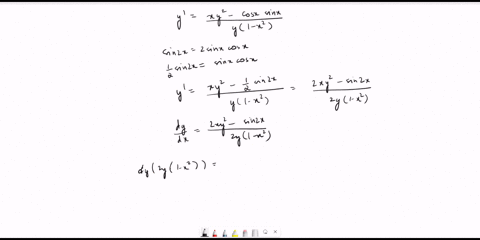 y' = xy² - cosx sinx / y(1-x²)
sin2x = 2sinx cosx
1/2 sin2x = sinx cosx
y' = xy² - 1/2 sin2x / y(1-x²) = 2xy² - sin2x / 2y(1-x²)
dy/dx = 2xy² - sin2x / 2y(1-x²)
dy(2y(1-x²)) =